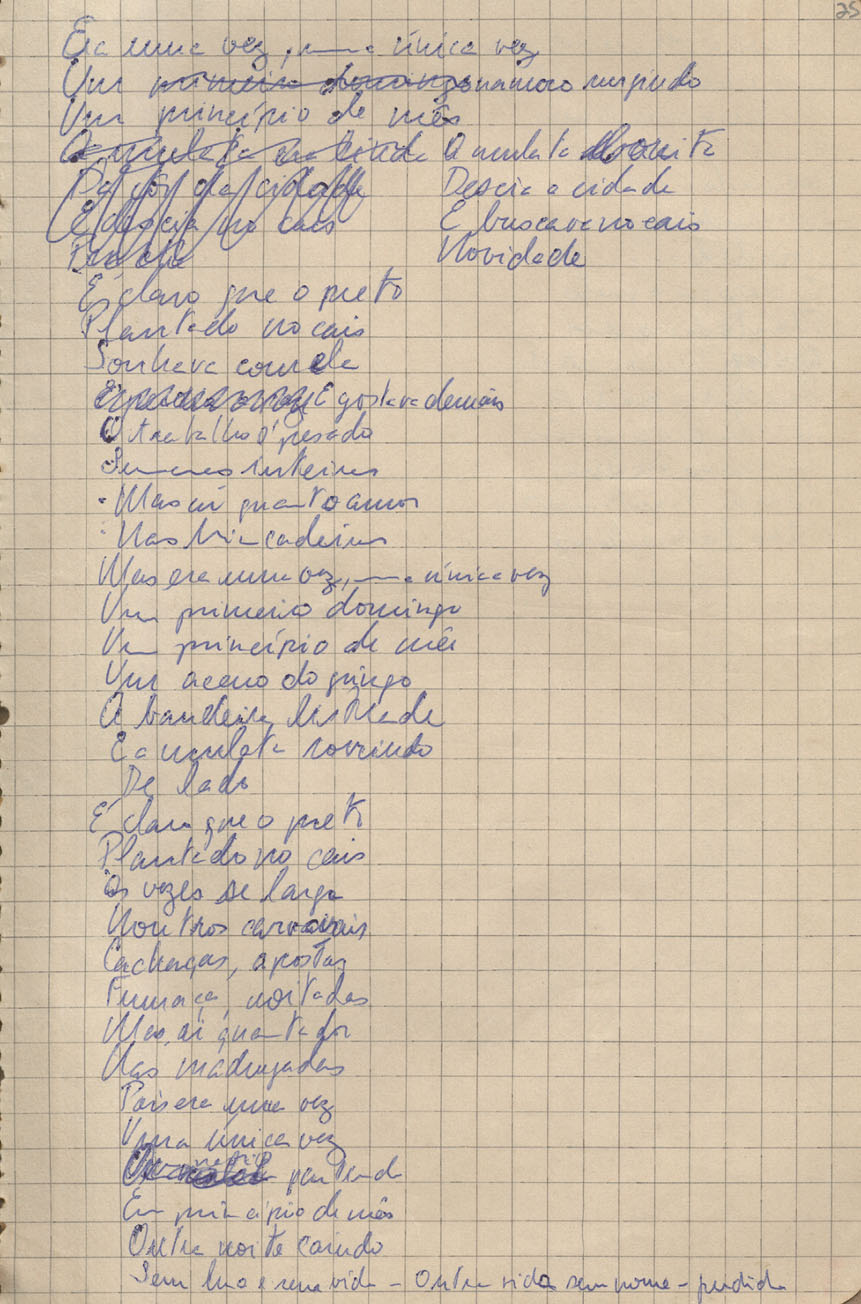 25
Era uma vez, uma única vez
Um primeiro domingo namoro surgindo
Um princípio de mês
A mulata era linda A mulata bonita
Da cidade Descia a cidade
E descia no cais E buscava no cais
Novidade
É claro que o preto
Plantado no cais
Sonhava com ela
E gostava demais
O trabalho é pesado
Semanas inteiras
Mas ai quanto amor
Nas brincadeiras
Mas era uma vez, uma única vez
Um primeiro domingo
Um princípio de mês
Um aceno do gringo
A bandeira listrada
E a mulata sorrindo
De lado
É claro que o preto
Plantado no cais
Às vezes se larga
Noutros carnavais
Cachaças, apostas
Fumaça, noitadas
Mas, ai quanta dor
Nas madrugadas
Pois era uma vez
Uma única vez
navio partindo
Em princípio de mês
Outra noite caindo
Sem lua e sem vida - Outra vida sem nome - perdida